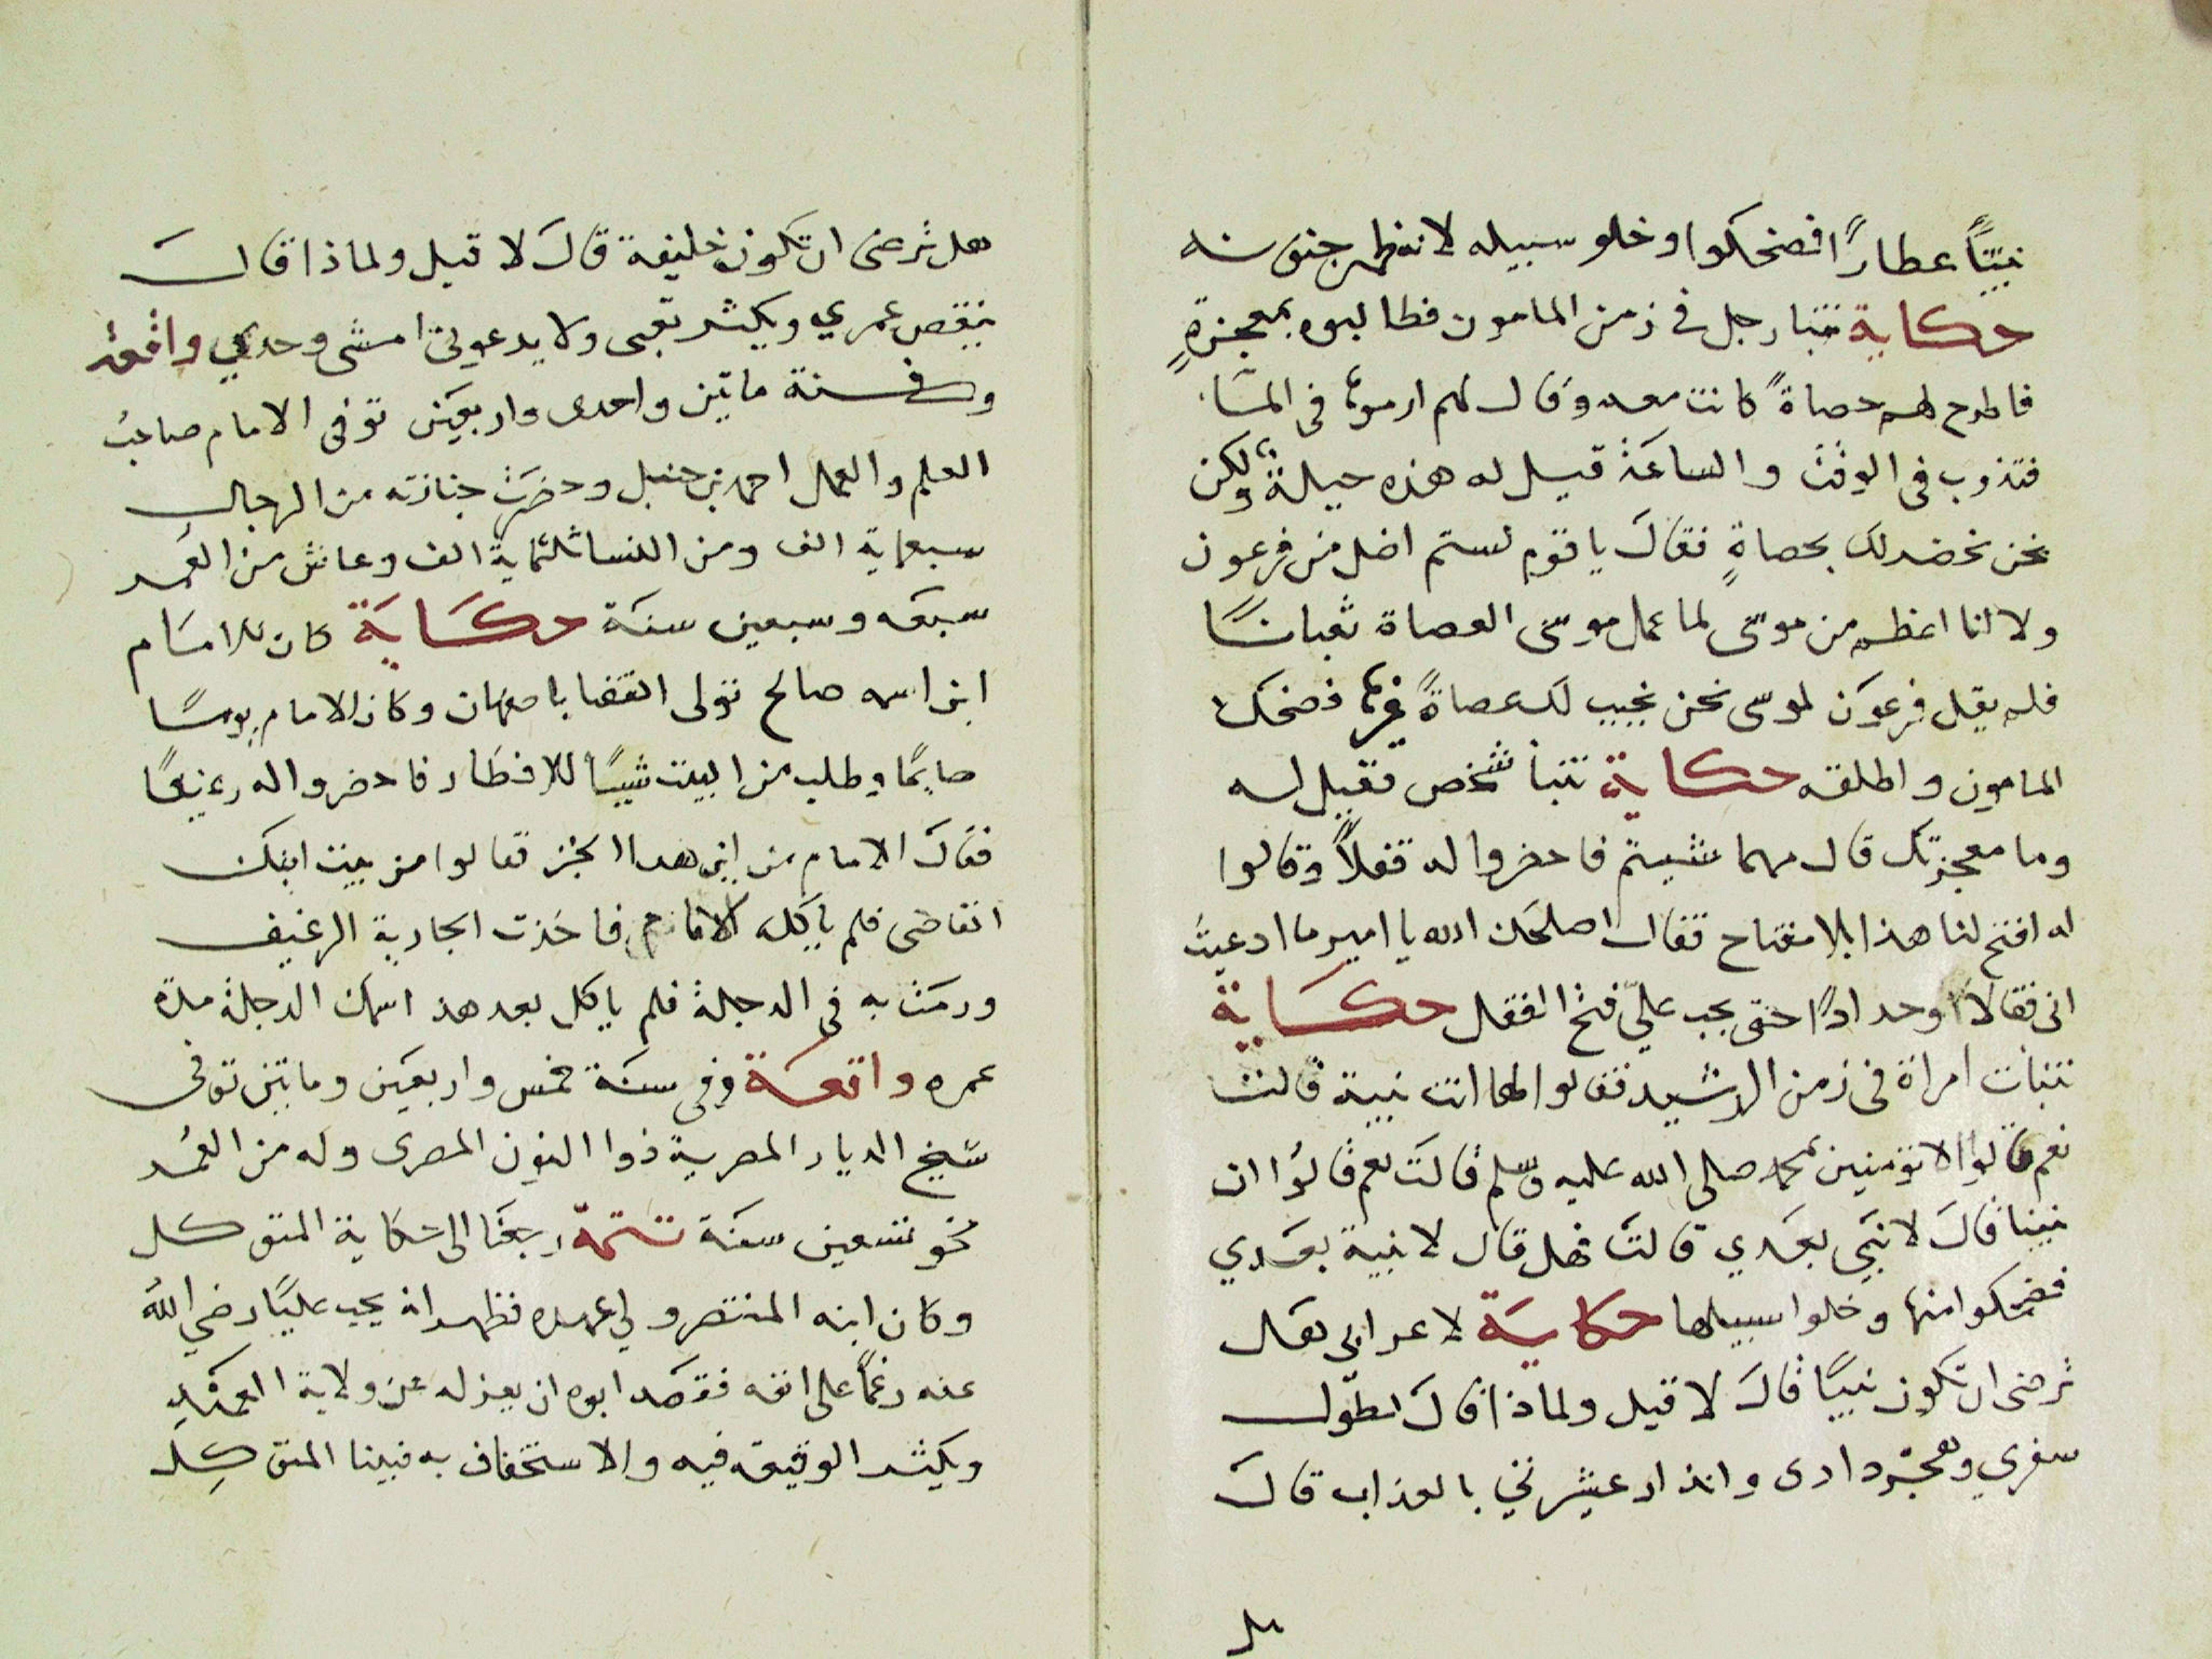 نبيًّا عطارًا فضحكوا وخلو سبيله لانه ظهر جنونه
حكاية تنبا رجل في زمن المامون فطالبوه بمعجزةٍ
فاطرح لهم حصاةً كانت معه وقال لهم ارموها في الماء
فتذوب في الوقت والساعة قيل له هذه حيلة ولكن
نحن نحضر لك بحصاةٍ فقال يا قوم لستم اضل من فرعون
ولا انا اعظم من موسى لما عمل موسى العصاة ثعبانًا
فلم يقل فرعون لموسى نحن نجيب لك عصاةً غيرها فضحك
المامون واطلقه حكاية تنبأ شخص فقيل له
وما معجزتك قال مهما شيتم فاحضروا له قفلاً وقالوا
له افتح لنا هذا بلا مفتاح فقال اصلحك الله يا امير ما ادعيت
اني قفالاً وحدادًا حتى يجب عليّ فتح القفل حكاية
تنبات امراة في زمن الرشيد فقالوا لها انت نبية قالت
نعم قالوا الا تؤمنين بمحمد صلى الله عليه وسلم قالت نعم قالوا ان
نبينا قال لا نبي بعدي قالت فهل قال لا نبية بعدي
فضحكوا منها وخلوا سبيلها حكاية لاعرابي هل
ترضى ان تكون نبيًّا قال لا قيل ولماذا قال يطول
سفري وتهجر داري وانذار عشيرتي بالعذاب قال
هل
هل ترضى ان تكون خليفة قال لا قيل ولماذا قال
ينقص عمري ويكثر تعبي ولا يدعوني امشي وحدي واقعة
وفي سنة ماتين واحدى واربعين توفى الامام صاحب
العلم والعمل احمد بن حنبل وحضرت جنازته من الرجال
سبعماية الف ومن النسا ثلثماية الف وعاش من العمر
سبعه وسبعين سنة حكاية كان للامام
ابن اسمه صالح تولى القضا باصبهان وكان الامام يومًا
صايمًا وطلب من البيت شييًا للافطار فاحضروا له رغيفًا
فقال الامام من اين هدا الخبز فقالوا من بيت ابنك
القاضي فلم ياكله الامام فاخذت الجارية الرغيف
ورمت به في الدجلة فلم ياكل بعد هذا سمك الدجلة مدة
عمره واقعة وفي سنة خمس واربعين وماتين توفى
شيخ الديار المصرية ذوا النون المصري وله من العمر
نحو تسعين سنة تتمة رجعنا الى حكاية المتوكل
وكان ابنه المنتصر ولي عهده فظهر انه يحب عليًا رضي الله
عنه رغمًا على انفه فقصد ابوه ان يعزله عن ولاية العهد
ويكثر الوقيعة فيه والاستخفاف به فبينا المتوكل